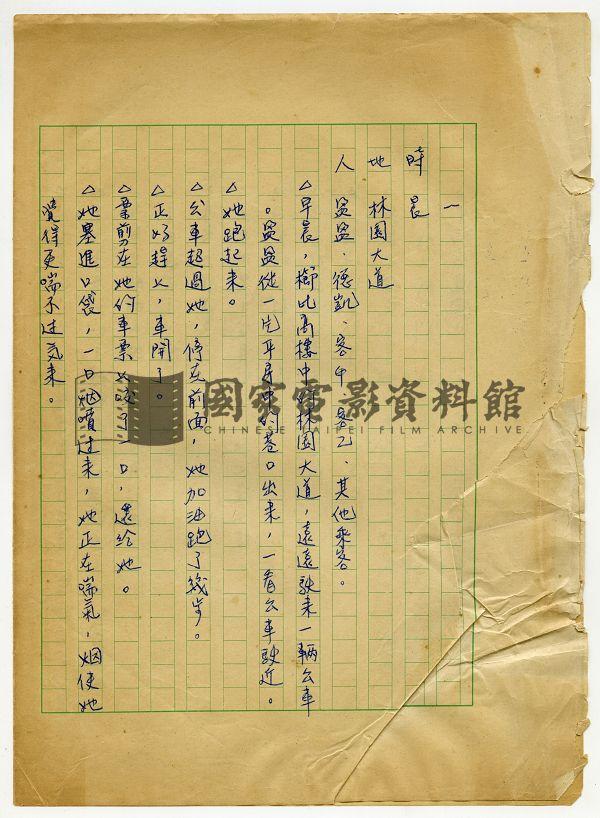 一
時 晨
地 林園大道
人 盈盈、德凱、客甲、客乙、其他乘客。
△早晨，櫛比高樓中的林園大道，遠遠駛来一輛公車
。盈盈從一片平房中的巷口出来，一看公車駛近。
△她跑起来。
△公車超過她，停在前面，她加油跑了幾步。
△正好趕上，車開了。
△票剪在她的車票上咬了一口，還给她。
△她塞進口袋，一口烟噴过来，她正在喘氣，烟使她
覺得更喘不过气来。
國家電影資料館
CHINESE TAIPEI FILM ARCHIVE